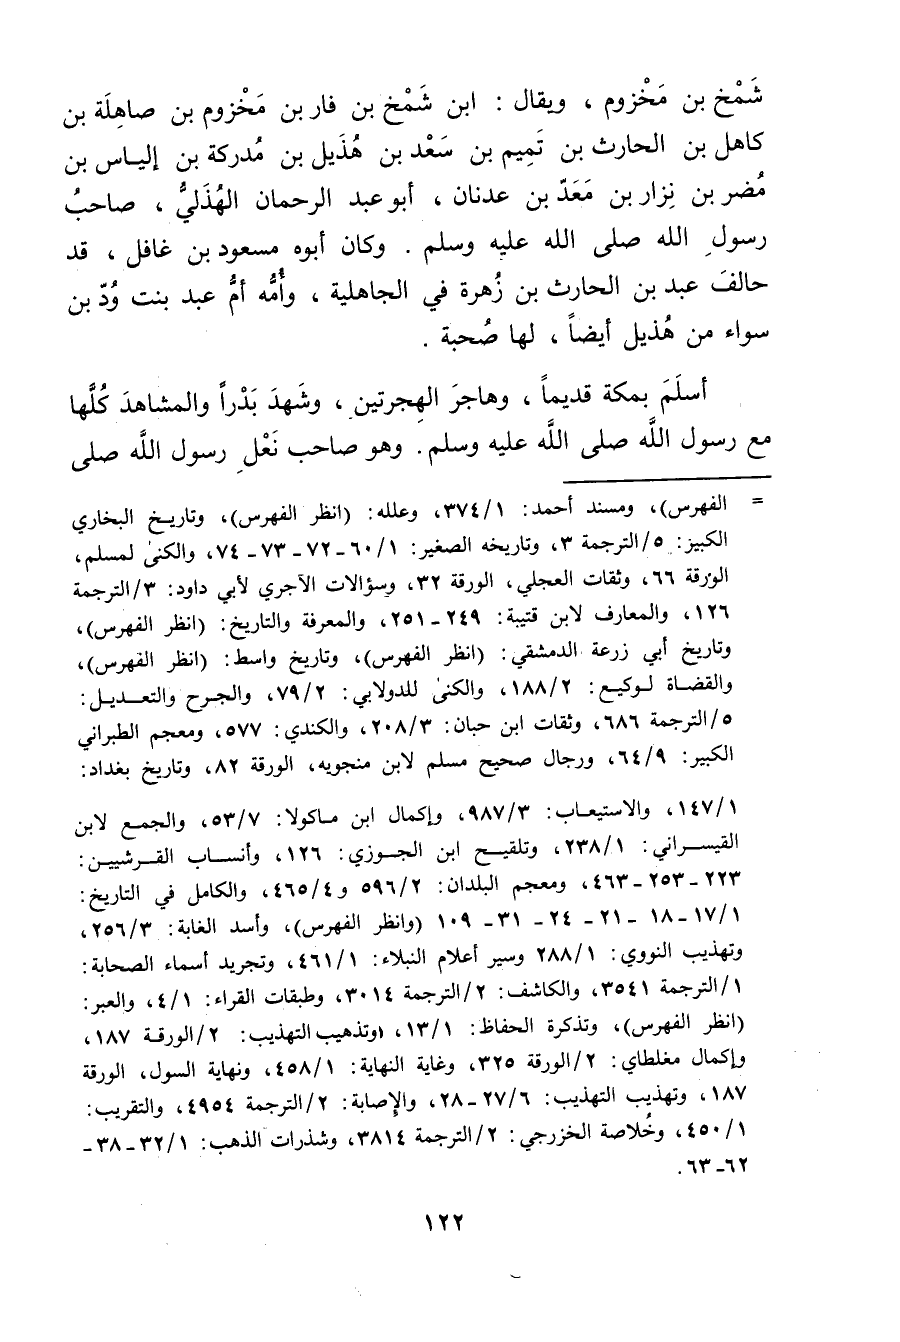 شَمْخ بن مَخْزوم ، ويقال : ابن شَمْخ بن فار بن مَخْزوم بن صاهِلَة بن
كاهل بن الحارث بن تَمِيم بن سَعْد بن هُذَيل بن مُدركة بن إلياس بن
مُضر بن نِزار بن مَعَدّ بن عدنان ، أبو عبد الرحمان الهُذَليُّ ، صاحبُ
رسولِ الله صلى الله عليه وسلم . وكان أبوه مسعود بن غافل ، قد
حالفَ عبد بن الحارث بن زُهرة في الجاهلية ، وأُمُّه أمُّ عبد بنت وُدّ بن
سواء من هُذيل أيضاً ، لها صُحبة .
أسلَمَ بمكة قديماً ، وهاجرَ الهِجرتين ، وشَهدَ بَدْراً والمشاهدَ كُلَّها
مع رسول اللَّه صلى اللَّه عليه وسلم. وهو صاحب نَعْلِ رسول اللَّه صلى
= الفهرس)، ومسند أحمد: ٣٧٤/١، وعلله: (انظر الفهرس)، وتاريخ البخاري
الكبيز: ٥/الترجمة ٣، وتاريخه الصغير: ٦٠/١-٧٢- ٧٣- ٧٤، والكنىٰ لمسلم،
الورقة ٦٦، وثقات العجلي، الورقة ٣٢، وسؤالات الآجري لأبي داود: ٣/الترجمة
١٢٦، والمعارف لابن قتيبة: ٢٤٩-٢٥١، والمعرفة والتاريخ: (انظر الفهرس)،
وتاريخ أبي زرعة الدمشقي: (انظر الفهرس)، وتاريخ واسط: (انظر الفهرس)،
والقضاة لوكيع: ١٨٨/٢، والكنىٰ للدولابي: ٧٩/٢، والجرح والتعديل:
٥/الترجمة ٦٨٦، وثقات ابن حبان: ٢٠٨/٣، والكندي: ٥٧٧، ومعجم الطبراني
الكبير: ٦٤/٩، ورجال صحيح مسلم لابن منجويه، الورقة ٨٢، وتاريخ بغداد:
١٤٧/١، والاستيعاب: ٩٨٧/٣، وإكمال ابن ماكولا: ٥٣/٧، والجمع لابن
القيسراني: ٢٣٨/١، وتلقيح ابن الجوزي: ١٢٦، وأنساب القرشيين:
٢٢٣-٢٥٣-٤٦٣، ومعجم البلدان: ٥٩٦/٢ و٤٦٥/٤، والكامل في التاريخ:
١٧/١-١٨ -٢١- ٢٤ -٣١- ١٠٩ (وانظر الفهرس)، وأسد الغابة: ٢٥٦/٣،
وتهذيب النووي: ٢٨٨/١ وسير أعلام النبلاء: ٤٦١/١، وتجريد أسماء الصحابة:
١/الترجمة ٣٥٤١، والكاشف: ٢/الترجمة ٣٠١٤، وطبقات القراء: ٤/١، والعبر:
(انظر الفهرس)، وتذكرة الحفاظ: ١٣/١، وتذهيب التهذيب: ٢/الورقة ١٨٧،
وإكمال مغلطاي: ٢/الورقة ٣٢٥، وغاية النهاية: ٤٥٨/١، ونهاية السول، الورقة
١٨٧، وتهذيب التهذيب: ٢٧/٦-٢٨، والإصابة: ٢/الترجمة ٤٩٥٤، والتقريب:
٤٥٠/١، وخُلاصة الخزرجي: ٢/الترجمة ٣٨١٤، وشذرات الذهب: ٣٢/١-٣٨-
٦٢-٦٣.
١٢٢